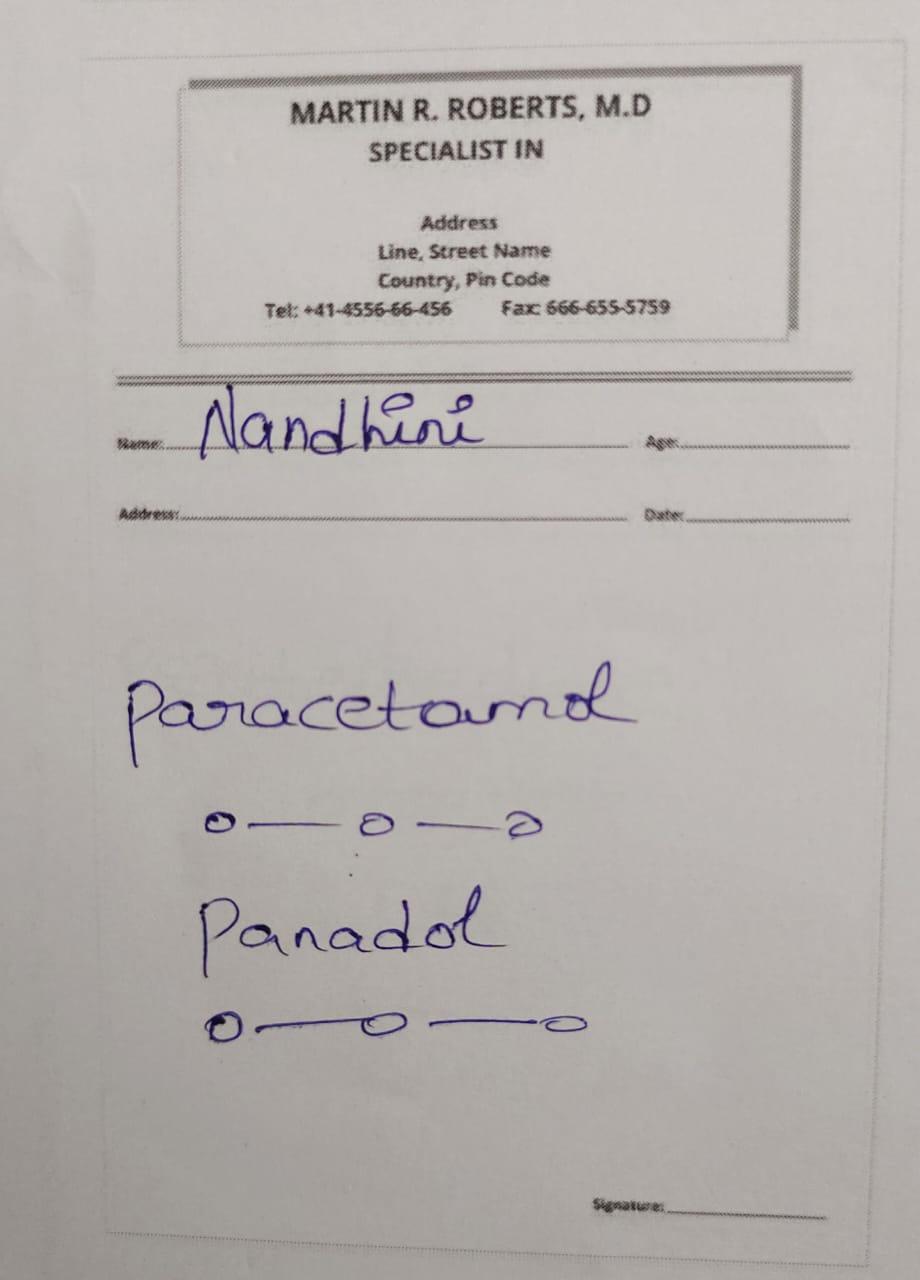 MARTIN R. ROBERTS, M.D
SPECIALIST IN
Address
Line, Street Name
Country, Pin Code
Tel: +41-4556-66-456 Fax: 666-655-5759
Name: Nandhini Age:
Address: Date:
Paracetamol
0 — 0 — 0
Panadol
0 — 0 — 0
Signature: